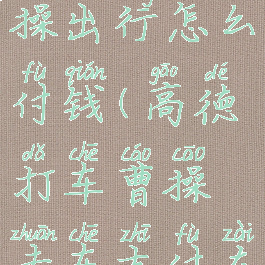 操出行怎么
fù qián gāo dé
付钱(高德
dǎ chē cáo cāo
打车曹操
zhuān chē zhī fù zài
专车支付在